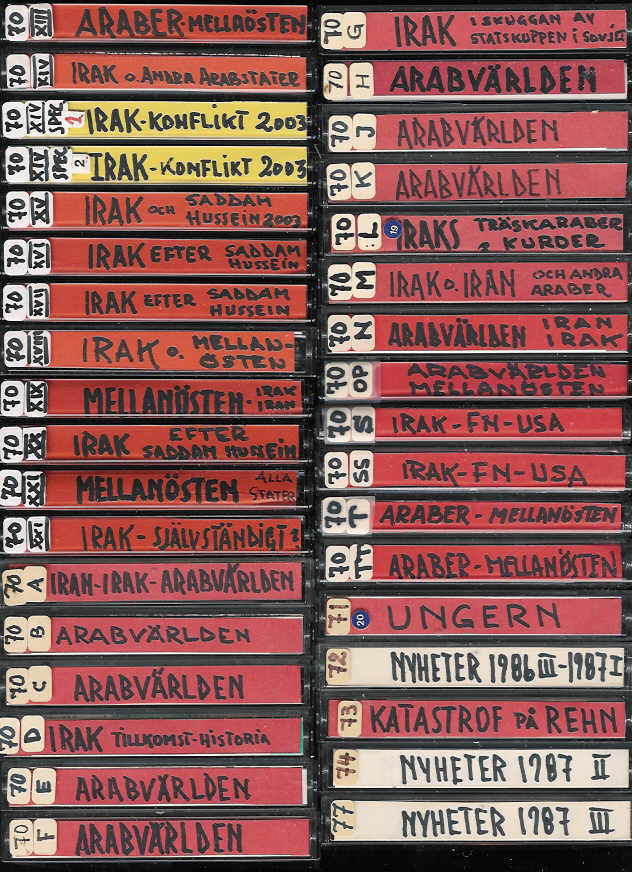 70 XIII ARABER-MELLANÖSTEN
70 XIV IRAK o. ANDRA ARABSTATER
70 XIV SPEC 1 IRAK-KONFLIKT 2003
70 XIV SPEC 2 IRAK-KONFLIKT 2003
70 XV IRAK OCH SADDAM
HUSSEIN 2003
70 XVI IRAK EFTER SADDAM
HUSSEIN
70 XVII IRAK EFTER SADDAM
HUSSEIN
70 XVIII IRAK o. MELLAN-
ÖSTEN
70 XIX MELLANÖSTEN- IRAK
IRAN
70 XX IRAK EFTER
SADDAM HUSSEIN
70 XXI MELLANÖSTEN ALLA
STATER
70 XXI IRAK-SJÄLVSTÄNDIGT?
70 A IRAN-IRAK-ARABVÄRLDEN
70 B ARABVÄRLDEN
70 C ARABVÄRLDEN
70 D IRAK TILLKOMST-HISTORIA
70 E ARABVÄRLDEN
70 F ARABVÄRLDEN
70 G IRAK I SKUGGAN AV
STATSKUPPEN i SOVJET
70 H ARABVÄRLDEN
70 J ARABVÄRLDEN
70 K ARABVÄRLDEN
70 L 19 IRAKS TRÄSKARABER
& KURDER
70 M IRAK o. IRAN OCH ANDRA
ARABER
70 N ARABVÄRLDEN IRAN
IRAK
70 OP ARABVÄRLDEN
MELLANÖSTEN
70 S IRAK-FN-USA
70 SS IRAK-FN-USA
70 T ARABER-MELLANÖSTEN
70 TT ARABER-MELLANÖSTEN
71 20 UNGERN
72 NYHETER 1986 III-1987 I
73 KATASTROF PÅ REHN
74 NYHETER 1987 II
77 NYHETER 1987 III